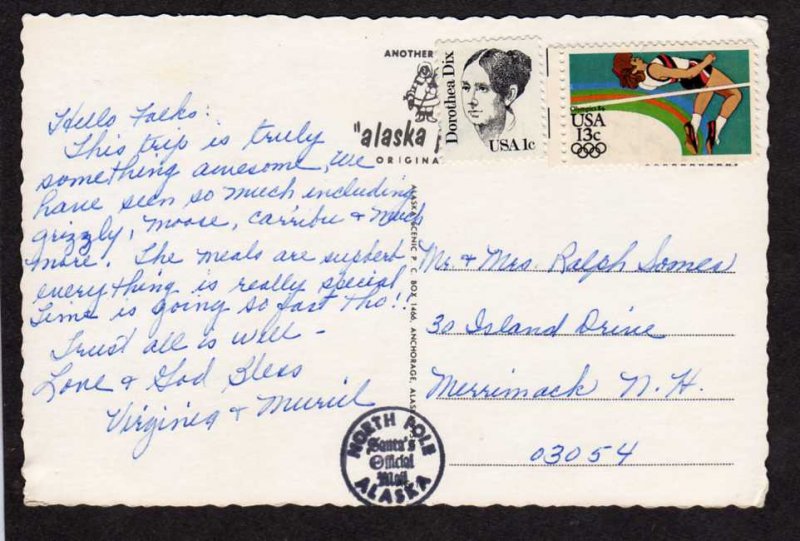 Hello Folks:
This trip is truly
something awesome, we
have seen so much including
grizzly, moose, carribu & much
more. The meals are supberb
everything is really special
Time is going so fast tho!!
Trust all is well –
Love & God Bless
Virginia & Muriel
ANOTHER
"alaska
ORIGINA
Dorothea Dix
USA 1c
Olympics 84
USA
13c
ALASKA SCENIC P. C. BOX 1466, ANCHORAGE, ALAS
Mr. & Mrs. Ralph Somes
30 Island Drive
Merrimack N. H.
03054
NORTH POLE
Santa's
Official
Mail
ALASKA